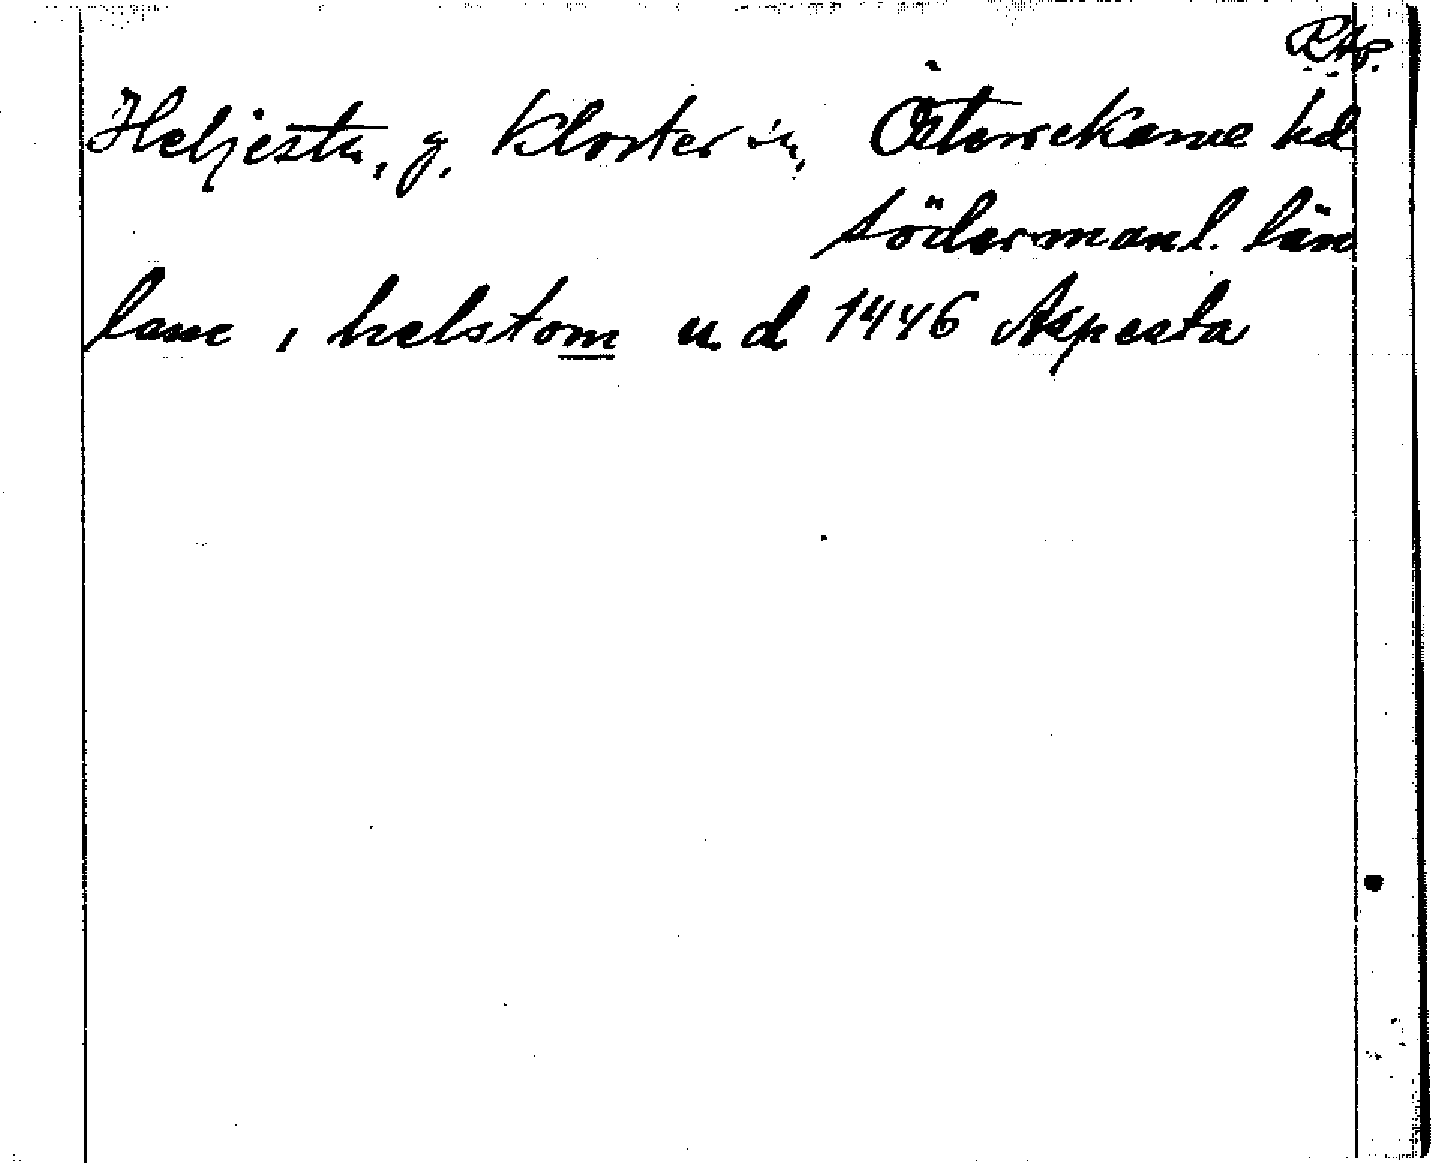 RAp.
Heljesta, g. Kloster sn, Österrekarne hd
Södermanl. län
lane i helstom u d 1446 Aspesta